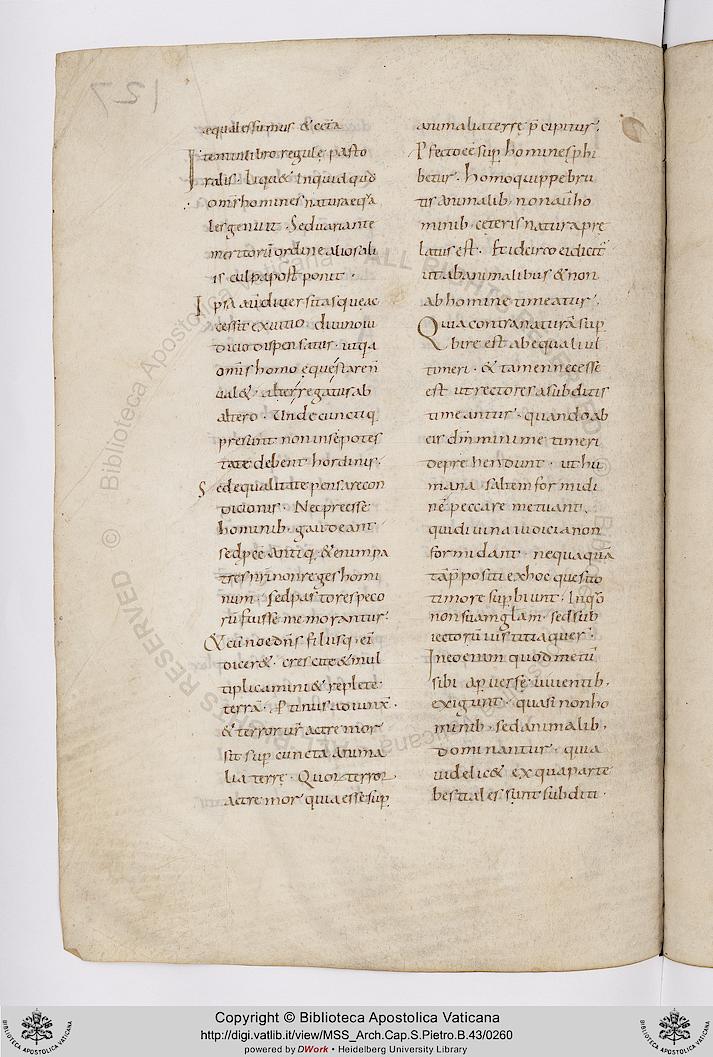 127
æqualessumus & cet̃a
Item inlibro regulę pasto
ralis . liqu& Inquid quod
om̃s homines natura eq̃a
les genuit . Sed uariante
meritorũ ordine alios ali
is culpa post ponit .
Ipsa aũ diuersitas que ac
cessit ex uitio . diuino iu
dicio dispensatur . ut q̃a
om̃s homo ęque stare ñ
ual& . alter regatur ab
altero . Unde cuncti q̃
presunt non in se potes
tatẽ debent hordinis .
Sed equalitate pensare con
dicionis . Nec preesse
hominib . gaudeant
sed p desse . Antiqi . &enim pa
tres nr̃i non reges homi
num . sed pastores peco
rũ fuisse memorantur .
& cũ noe dñs filiisq . ei
dicer& . crescite & mul
tiplicamini & replete
terrã . P tinus adiunx̃ .
& terror ur̃ ac tremor
sit sup cuncta anima
lia terrę . Quor terror
ac tremor quia esse sup
animalia terrę p̃ cipitur .
P fecto eẽ sup homines phi
betur . homo quippe bru
tis animalib . non aũ ho
minib . ceteris natura prę
latus est . Et idcirco ei dicit̃
ut ab animalibus & non
ab homine timeatur .
Quia contra naturã sup
bire est ab equali uel
timeri . & tamen necesse
est ut rectores a subditis
timeantur . quando ab
eis dm̃ minime timeri
deprehendunt . ut hu
mana saltem formidi
nẽ peccare metuant .
qui diuina iudicia non
formidant . nequaquã
tã p̃positi ex hoc quesito
timore supbiunt . In quo
non suam gl̃am . sed sub
iectorũ iustitia quer .
In eo enim quod metũ
sibi a puerse uiuentib .
exigunt . quasi non ho
minib . sed animalib .
dominantur . quia
uidelic& ex qua parte
bestiales sunt subditi .
Copyright © Biblioteca Apostolica Vaticana
http://digi.vatlib.it/view/MSS_Arch.Cap.S.Pietro.B.43/0260
powered by DWork • Heidelberg University Library